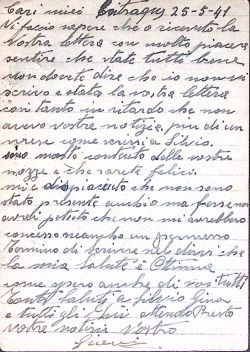 Cari miei 25-5-41
Vi faccio sapere che o ricevuto la
Vostra lettera con molto piacere
sentire che state tutti bene
non dovete dire che io non vi
scrivo e stato la vostra lettera
con tanto in ritardo che non
avevo vostre notizie, piu di un
mese come scrissi a Silvio,
sono molto contento delle vostre
nozze e che sarete felici
mi e dispiaciuto che non sono
stato presente anchio ma forse non
avrei potuto che non mi avrebbero
concesso neancho un permesso
Termino di scrivere nel dirvi che
la mia salute è Ottima
come spero anche di voi tutti
Tanti saluti a Gina
e tutti gli Attendo Presto
vostre notizie Vostro